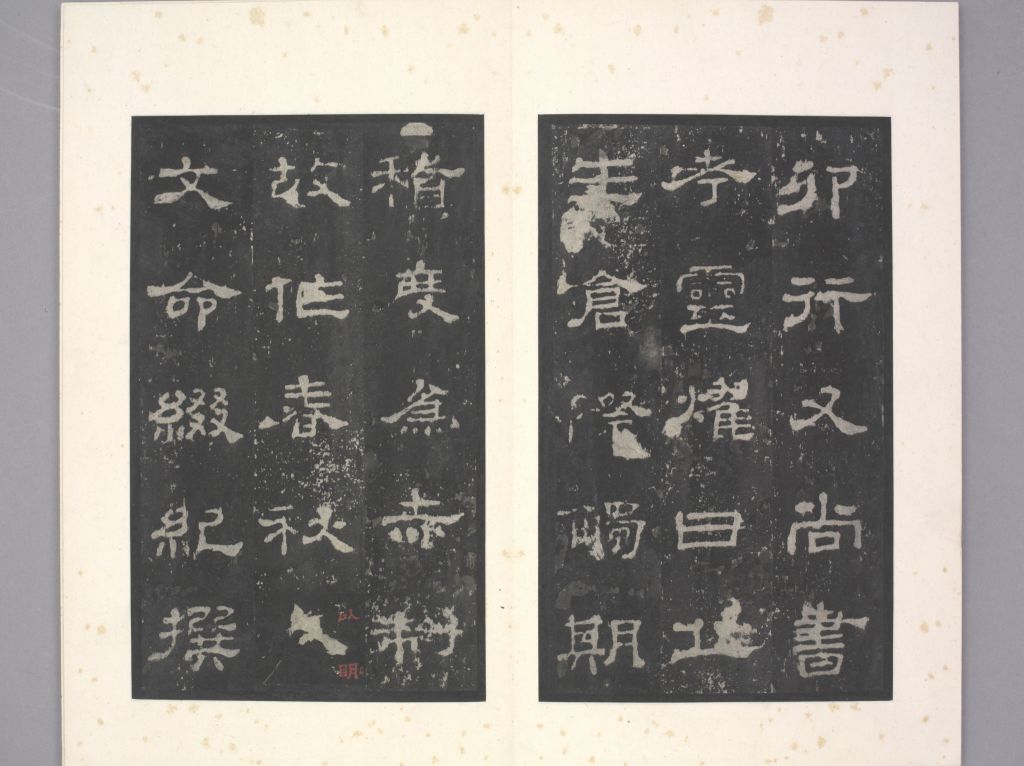 卯行又尚書
考靈耀曰丘
生倉際觸期
稽度為赤制
故作春秋以明
文命綴紀撰